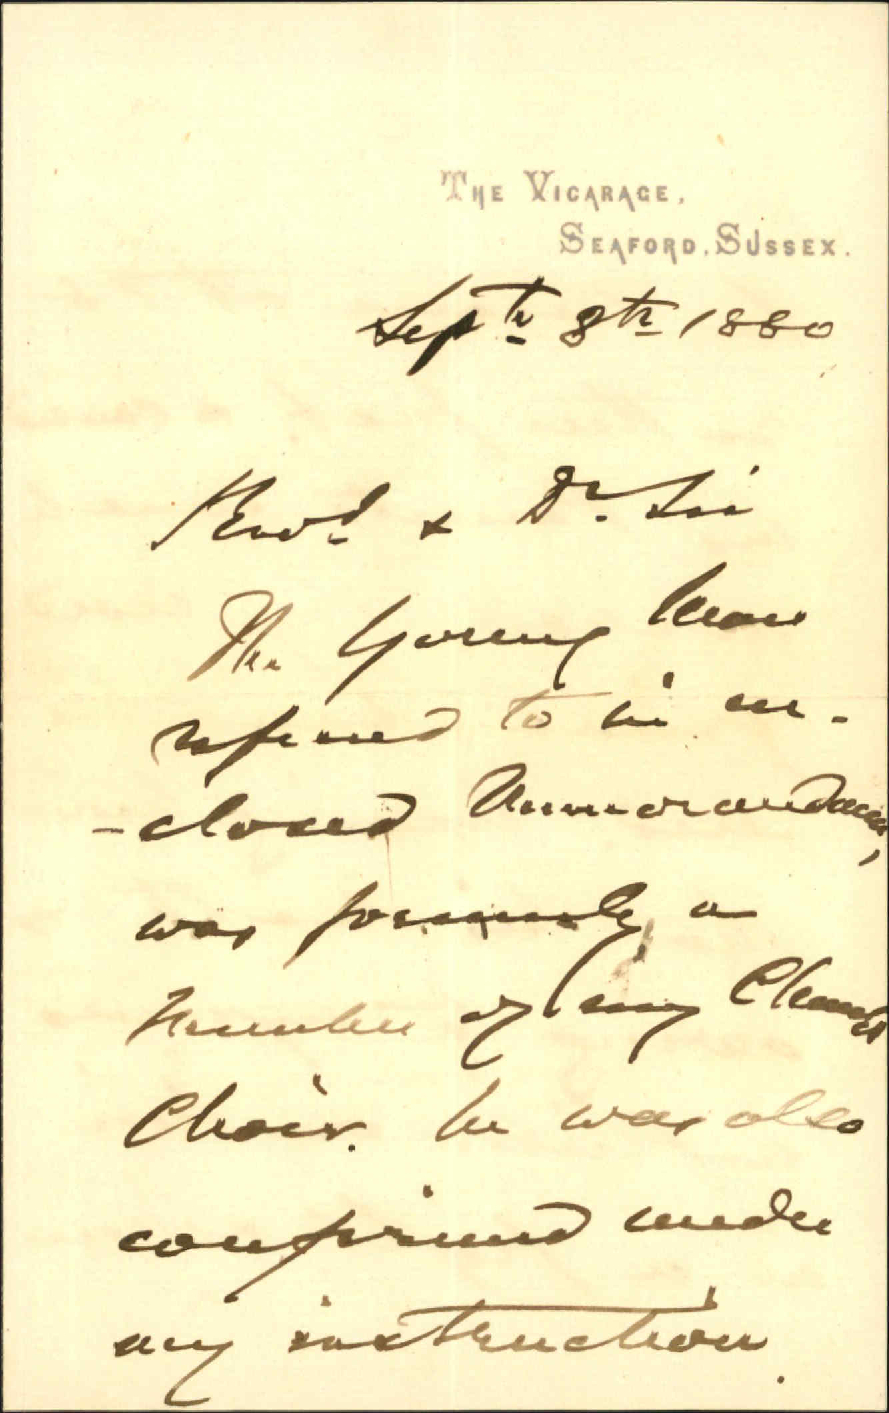 THE VICARAGE,
SEAFORD, SUSSEX.
Septr 8th 1880
Revd & Dr Sir
The Young Man
referred to in en-
-closed Memorandum,
was formerly a
Member of my Church
Choir. he was also
confirmed under
my instruction.